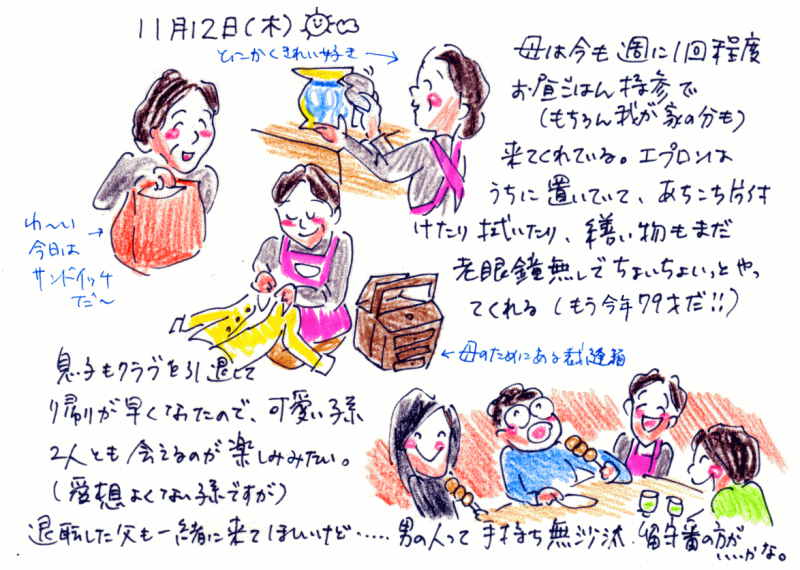 11月12日(木)
とにかくきれい好き
母は今も週に1回程度
お昼ごはん持参で
(もちろん我が家の分も)
来てくれている。エプロンは
うちに置いていて、あちこち片付
けたり拭いたり、繕い物もまだ
老眼鏡無しでちょいちょいっとやっ
てくれる(もう今年79才だ!!)
わ〜い
今日は
サンドイッチ
だ〜
母のためにある裁縫箱
息子もクラブを引退して
帰りが早くなったので、可愛い孫
2人とも会えるのが楽しみみたい。
(愛想よくない孫ですが)
退転した父も一緒に来てほしいけど……男の人って手持ち無沙汰、留守番の方が
いいかな。